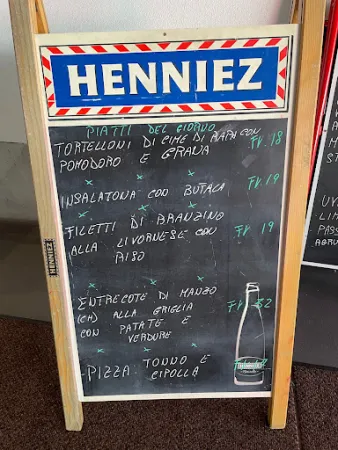 HENNIEZ
PIATTI DEL GIORNO
TORTELLONI DI CIME DI RAPA CON
POMODORO E GRANA Fr. 18
INSALATONA CON BUTALA Fr. 19
FILETTI DI BRANZINO
ALLA LIVORNESE CON Fr 19
RISO
ENTRECOTE DI MANZO
(CH) ALLA GRIGLIA Fr 32
CON PATATE E
VERDURE
PIZZA: TONNO E
CIPOLLA
HENNIEZ
HENNIEZ